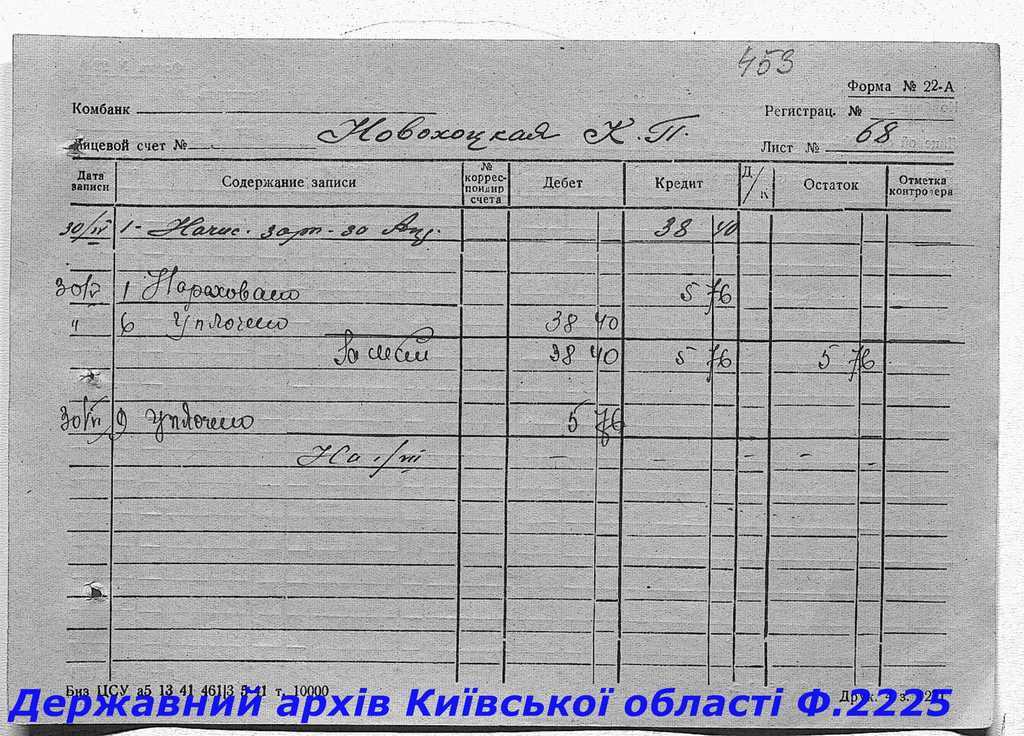 453
Форма № 22-А
Комбанк
Регистрац. №
Лицевой счет № Новохоцкая К. П.
Лист № 68
Дата записи Содержание записи № коррес-пондир счета Дебет Кредит Д/К Остаток Отметка контролера
30/IV 1 - Начис. зарп - за Апр. 38 40
30/V 1 Нараховано 5 76
" 6 Уплочено 38 40
За май 38 40 5 76 5 76
30/VI 9 Уплочено 5 76
На 1/VII - - - -
Биз ЦСУ а5 13 41 461|3 5 41 т. 10000
Друк.
Державний архів Київської області Ф.2225